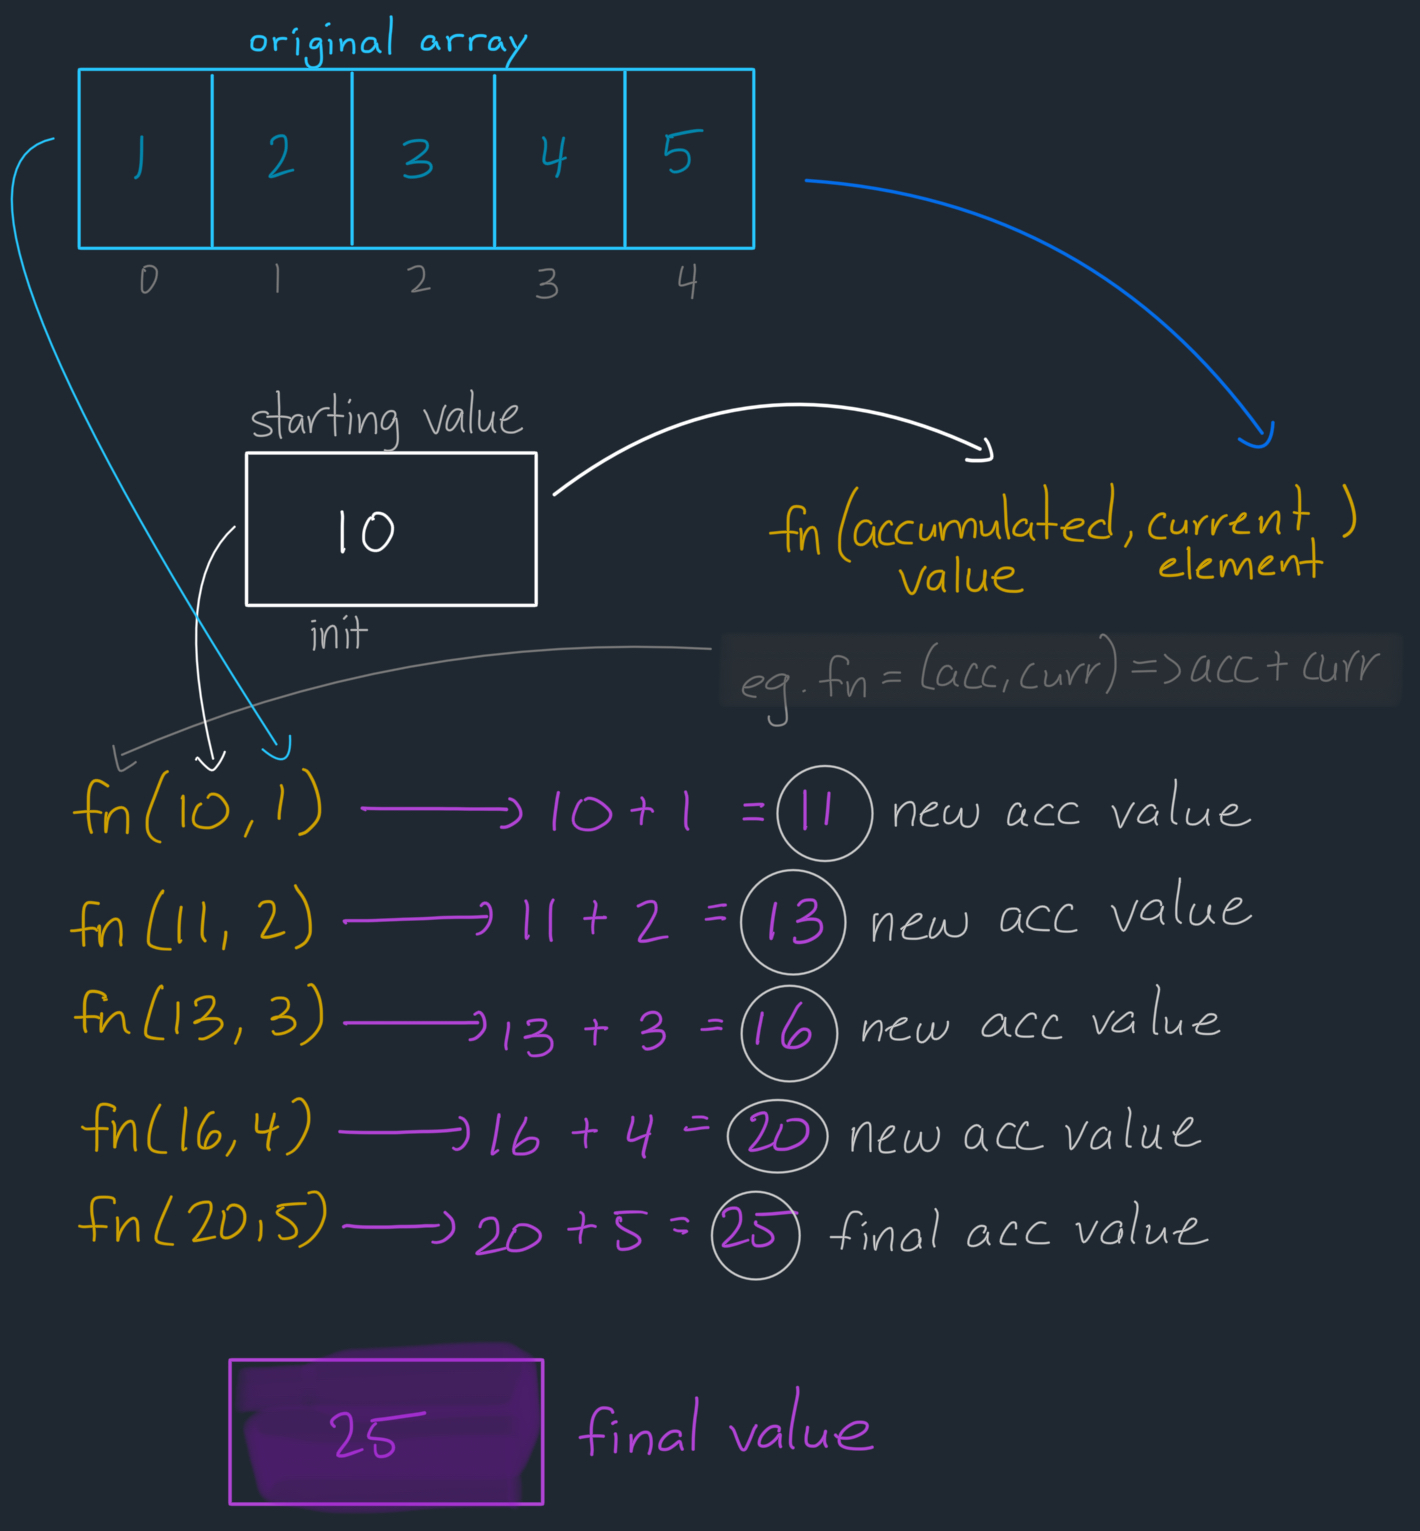 original array
1 2 3 4 5
0 1 2 3 4
starting value
10
init
fn (accumulated, current )
value element
eg. fn = (acc, curr) => acc + curr
fn(10, 1) → 10 + 1 = 11 new acc value
fn(11, 2) → 11 + 2 = 13 new acc value
fn(13, 3) → 13 + 3 = 16 new acc value
fn(16, 4) → 16 + 4 = 20 new acc value
fn(20, 5) → 20 + 5 = 25 final acc value
25 final value